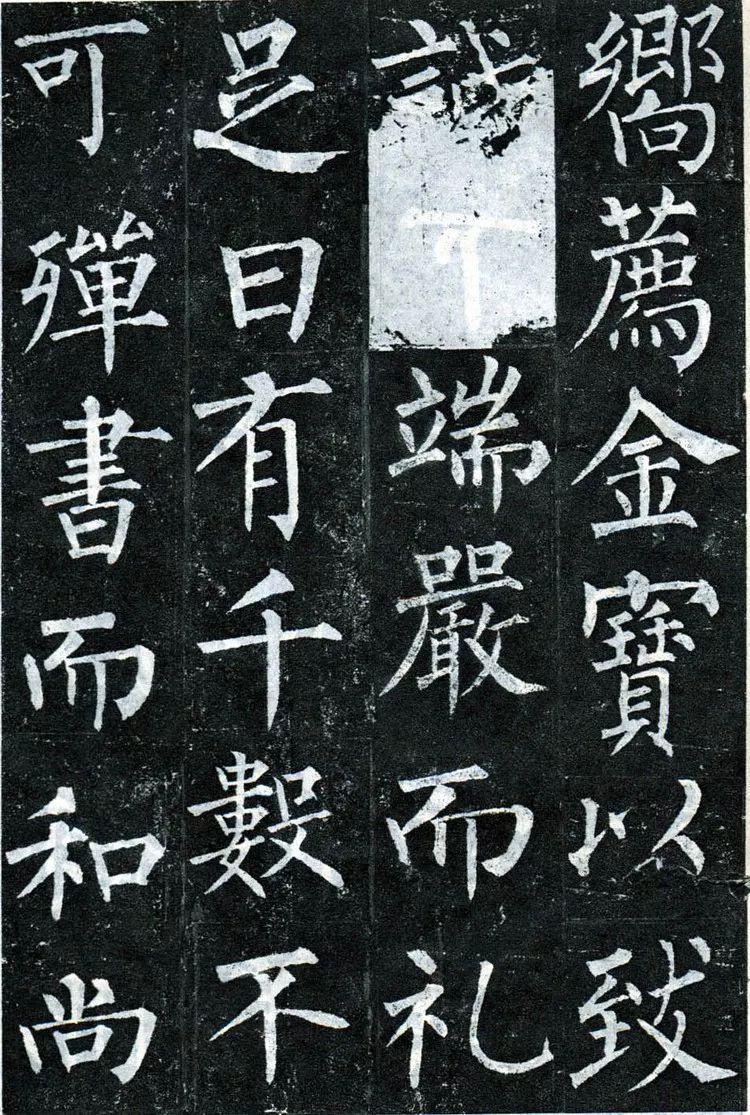 嚮薦金寶以致
誠端嚴而礼
足日有千數不
可殫書而和尚